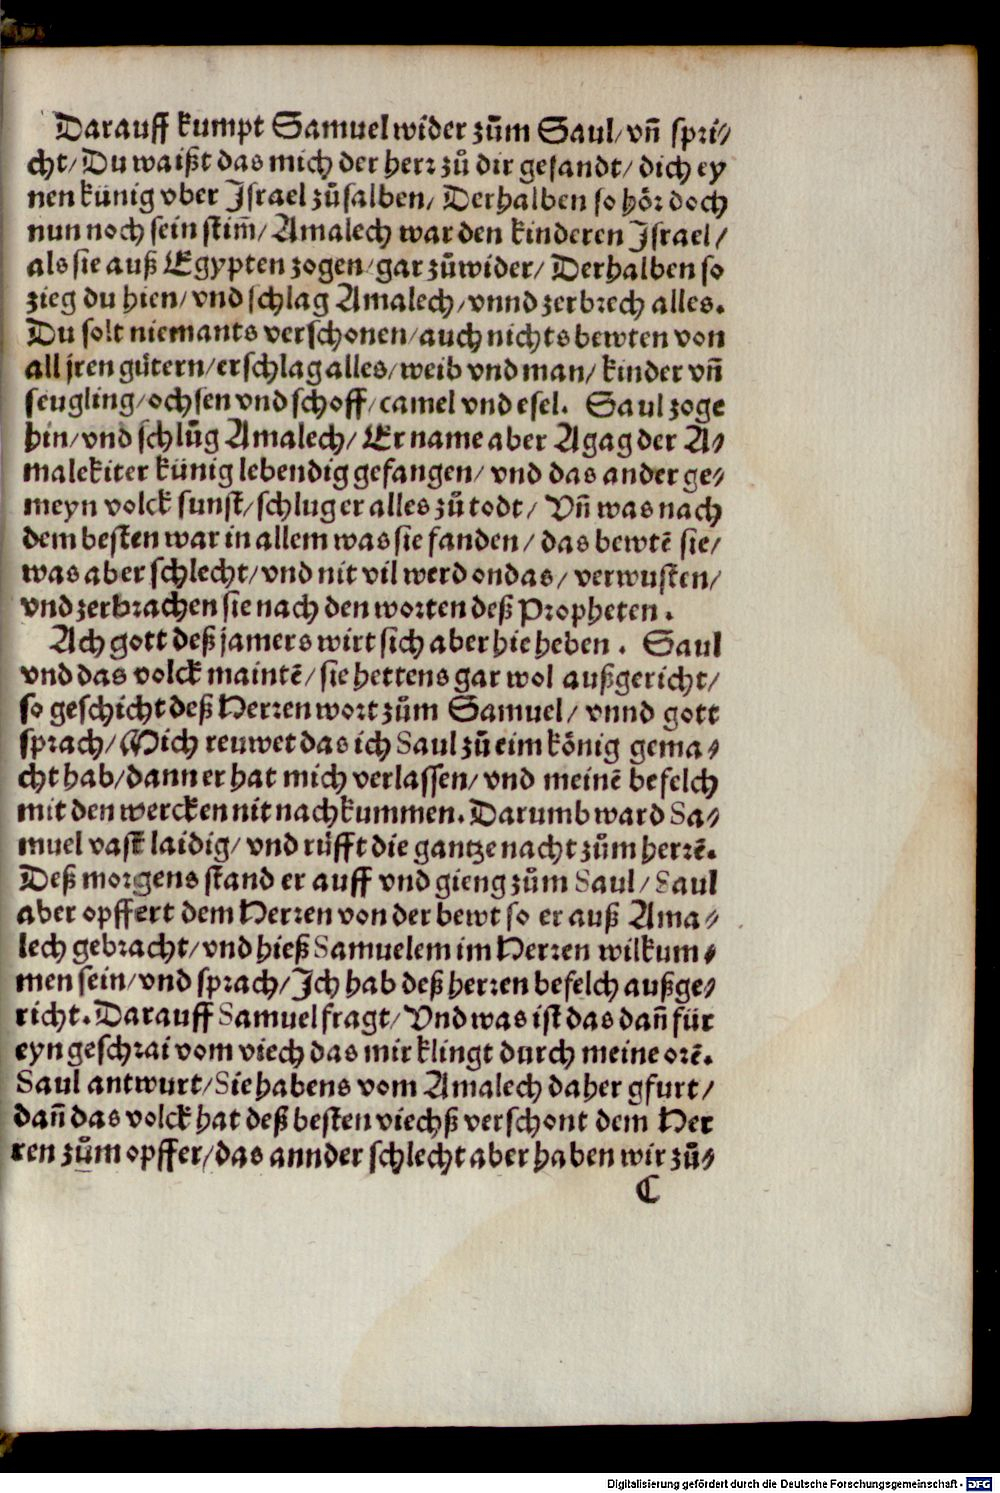 Darauff kumpt Samuel wider zům Saul/ vñ spri⸗
cht/ Du waißt das mich der herr zů dir gesandt/ dich ey
nen künig vber Israel zůsalben/ Derhalben so hör doch
nun noch sein stim̄/ Amalech war den kinderen Israel/
als sie auß Egypten zogen/ gar zůwider/ Derhalben so
zieg du hien/ vnd schlag Amalech/ vnnd zerbrech alles.
Du solt niemants verschonen/ auch nichts bewten von
all jren gütern/ erschlag alles/ weib vnd man/ kinder vñ
seugling/ ochsen vnd schoff/ camel vnd esel. Saul zoge
hin/ vnd schlůg Amalech/ Er name aber Agag der A⸗
malekiter künig lebendig gefangen/ vnd das ander ge⸗
meyn volck sunst/ schlug er alles zů todt/ Vñ was nach
dem besten war in allem was sie fanden/ das bewtē sie/
was aber schlecht/ vnd nit vil werd ondas/ verwusten/
vnd zerbrachen sie nach den worten deß Propheten.
Ach gott deß jamers wirt sich aber hie heben. Saul
vnd das volck maintē/ sie hettens gar wol außgericht/
so geschicht deß Herren wort zům Samuel/ vnnd gott
sprach/ Mich reuwet das ich Saul zů eim könig gema⸗
cht hab/ dann er hat mich verlassen/ vnd meinē befelch
mit den wercken nit nachkummen. Darumb ward Sa⸗
muel vast laidig/ vnd rüfft die gantze nacht zům herrē.
Deß morgens stand er auff vnd gieng zům Saul/ Saul
aber opffert dem Herren von der bewt so er auß Ama⸗
lech gebracht/ vnd hieß Samuelem im Herren wilkum⸗
men sein/ vnd sprach/ Ich hab deß herren befelch außge⸗
richt. Darauff Samuel fragt/ Vnd was ist das dañ für
eyn geschrai vom viech das mir klingt durch meine orē.
Saul antwurt/ Sie habens vom Amalech daher gfurt/
dañ das volck hat deß besten viechß verschont dem Her
ren zům opffer/ das annder schlecht aber haben wir zů⸗
C
Digitalisierung gefördert durch die Deutsche Forschungsgemeinschaft - DFG